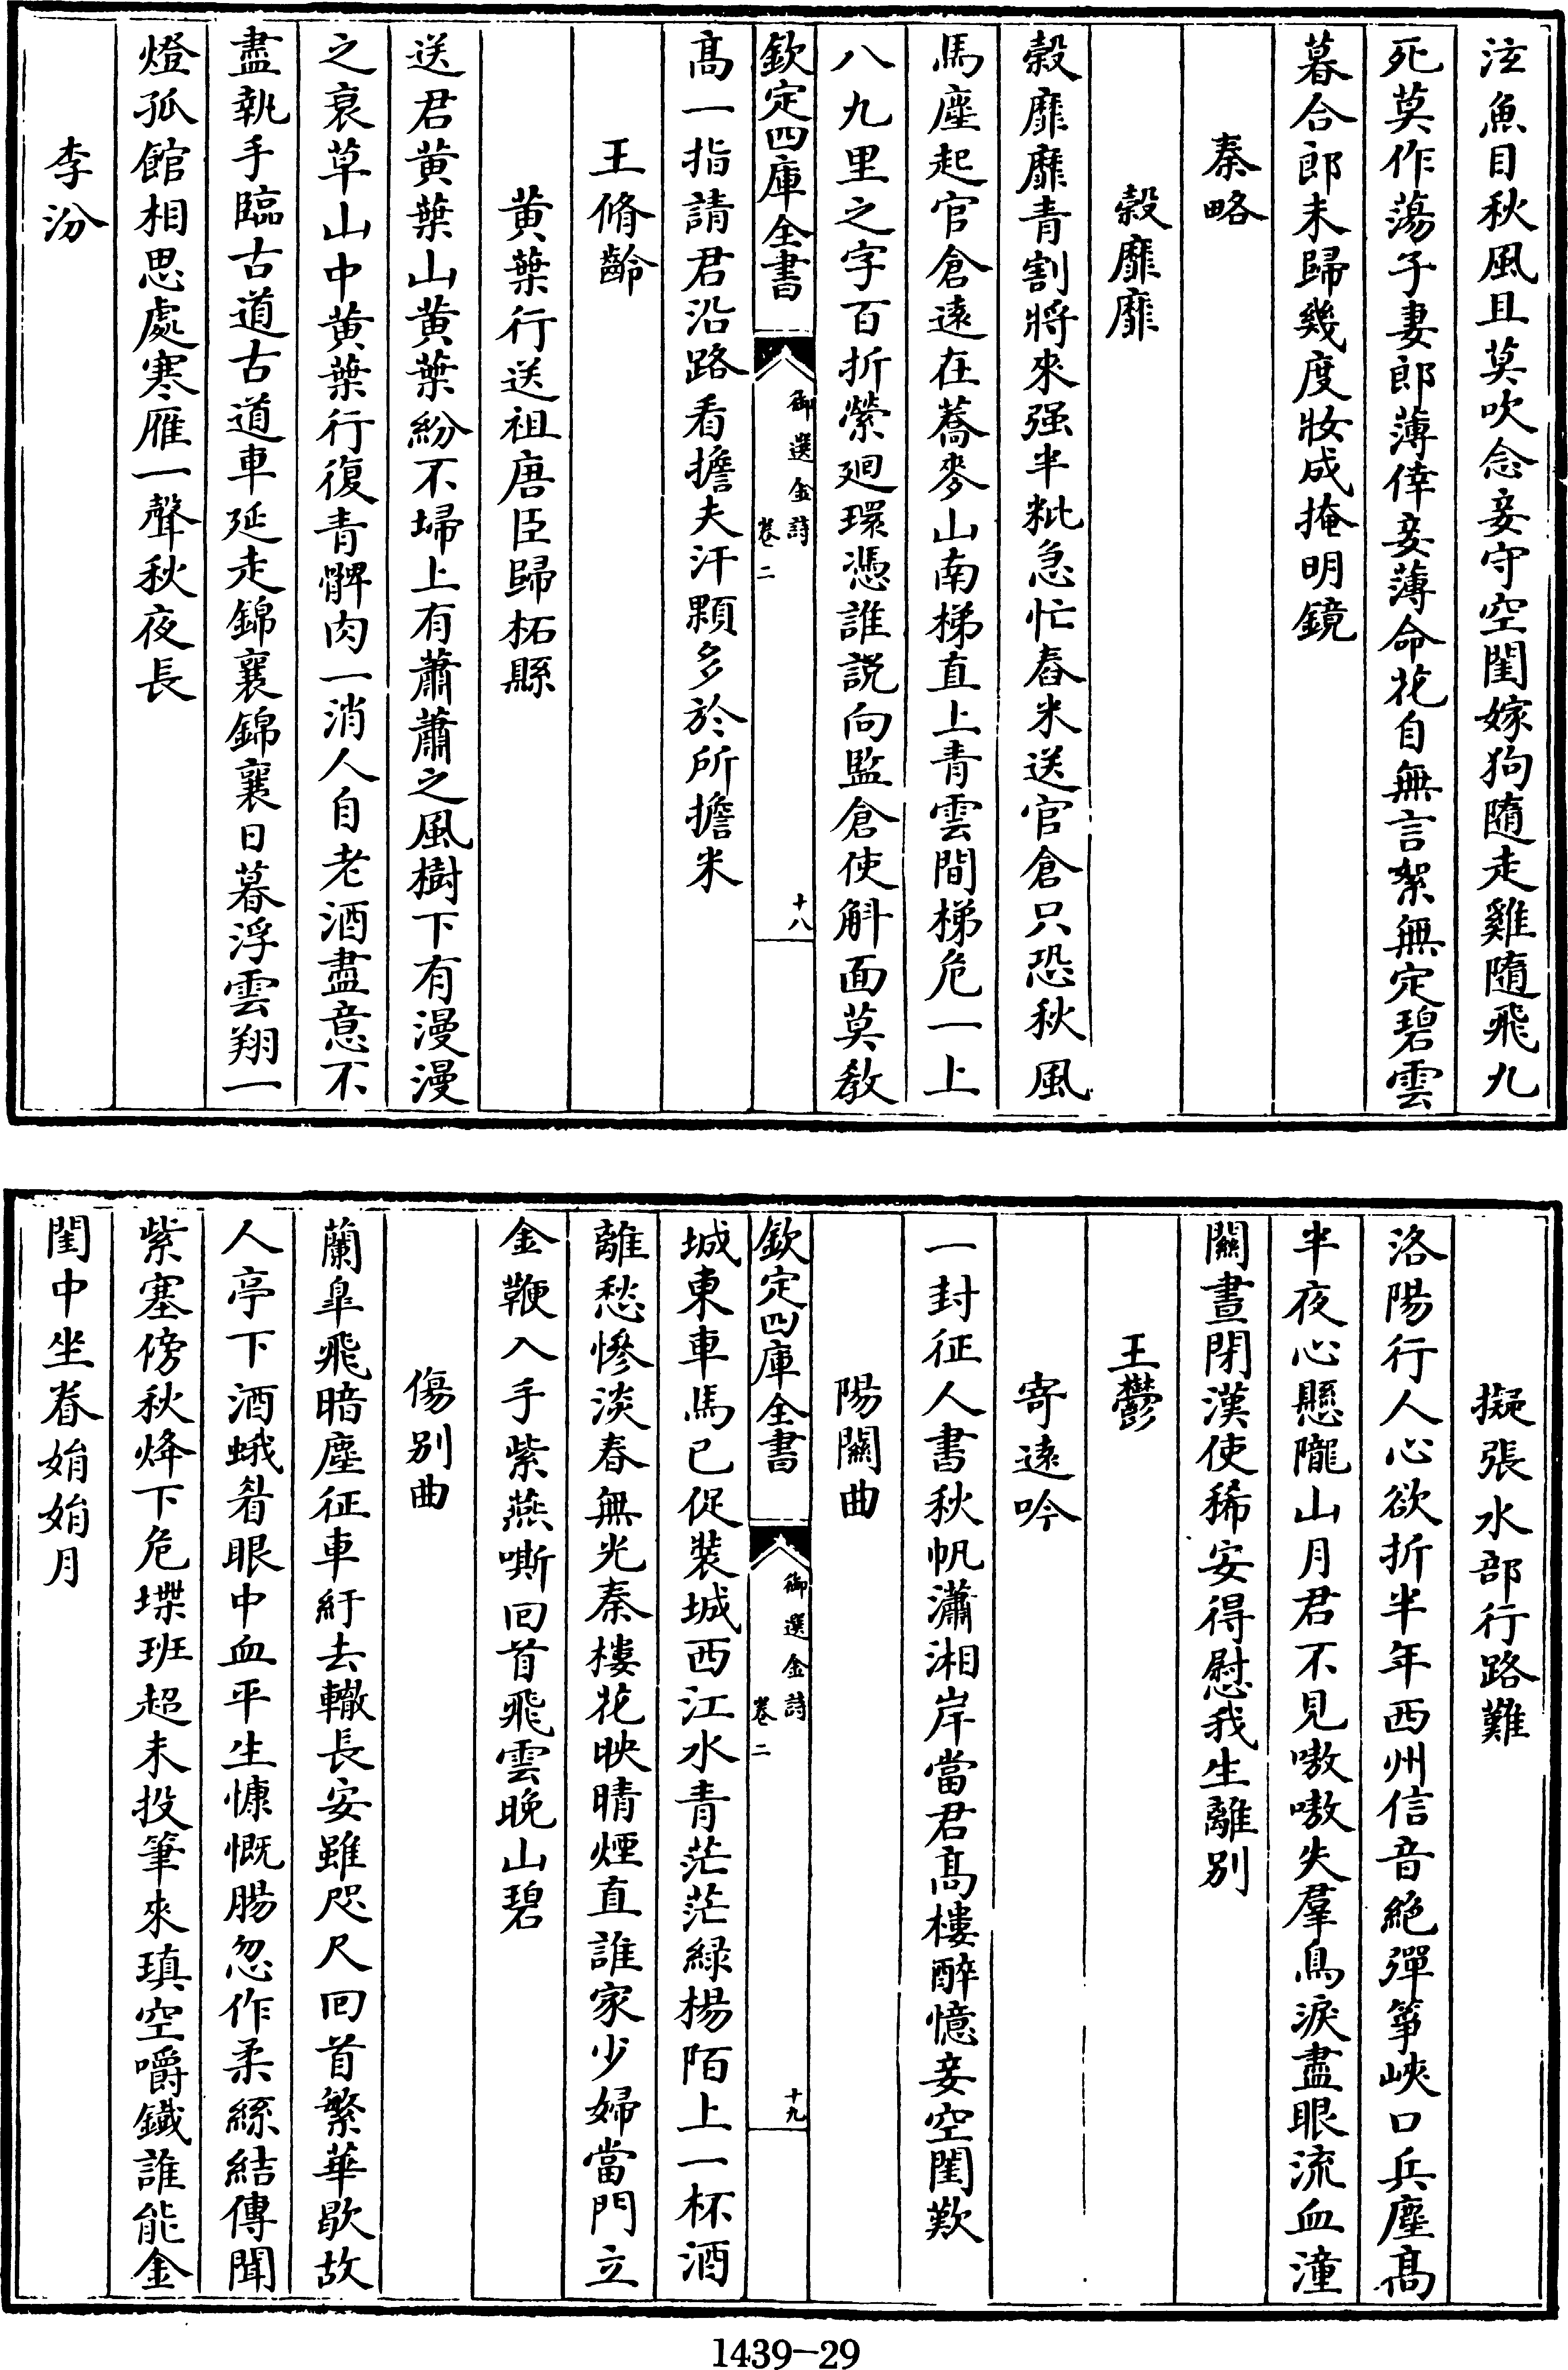 泣魚目秋風且莫吹念妾守空閨嫁狗隨走雞隨飛九
死莫作蕩子妻郎薄倖妾薄命花自無言絮無定碧雲
暮合郎未歸幾度妝成掩明鏡
秦略
穀靡靡
穀靡靡青割將來强半粃急忙舂米送官倉只恐秋風
馬塵起官倉逺在蕎麥山南梯直上青雲間梯危一上
八九里之字百折縈廻環憑誰説向監倉使斛面莫教
欽定四庫全書
御選金詩
卷二
十八
髙一指請君沿路看擔夫汗顆多於所擔米
王脩齡
黄葉行送祖唐臣歸柘縣
送君黄葉山黄葉紛不埽上有蕭蕭之風樹下有漫漫
之衰草山中黄葉行復青髀肉一消人自老酒盡意不
盡執手臨古道古道車延走錦襄錦襄日暮浮雲翔一
燈孤館相思處寒雁一聲秋夜長
李汾
擬張水部行路難
洛陽行人心欲折半年西州信音絶彈箏峽口兵塵髙
半夜心懸隴山月君不見嗷嗷失羣鳥淚盡眼流血潼
關晝閉漢使稀安得慰我生離别
王鬱
寄逺吟
一封征人書秋帆瀟湘岸當君髙樓醉憶妾空閨歎
陽關曲
欽定四庫全書
御選金詩
卷二
十九
城東車馬已促装城西江水青茫茫緑楊陌上一杯酒
離愁慘淡春無光秦樓花映晴煙直誰家少婦當門立
金鞭入手紫燕嘶回首飛雲晚山碧
傷别曲
蘭臯飛暗塵征車紆去轍長安雖咫尺回首繁華歇故
人亭下酒蛾眉眼中血平生慷慨腸忽作柔絲結傳聞
紫塞傍秋烽下危堞班超未投筆來瑱空嚼鐵誰能金
閨中坐眷娟娟月
1439-29